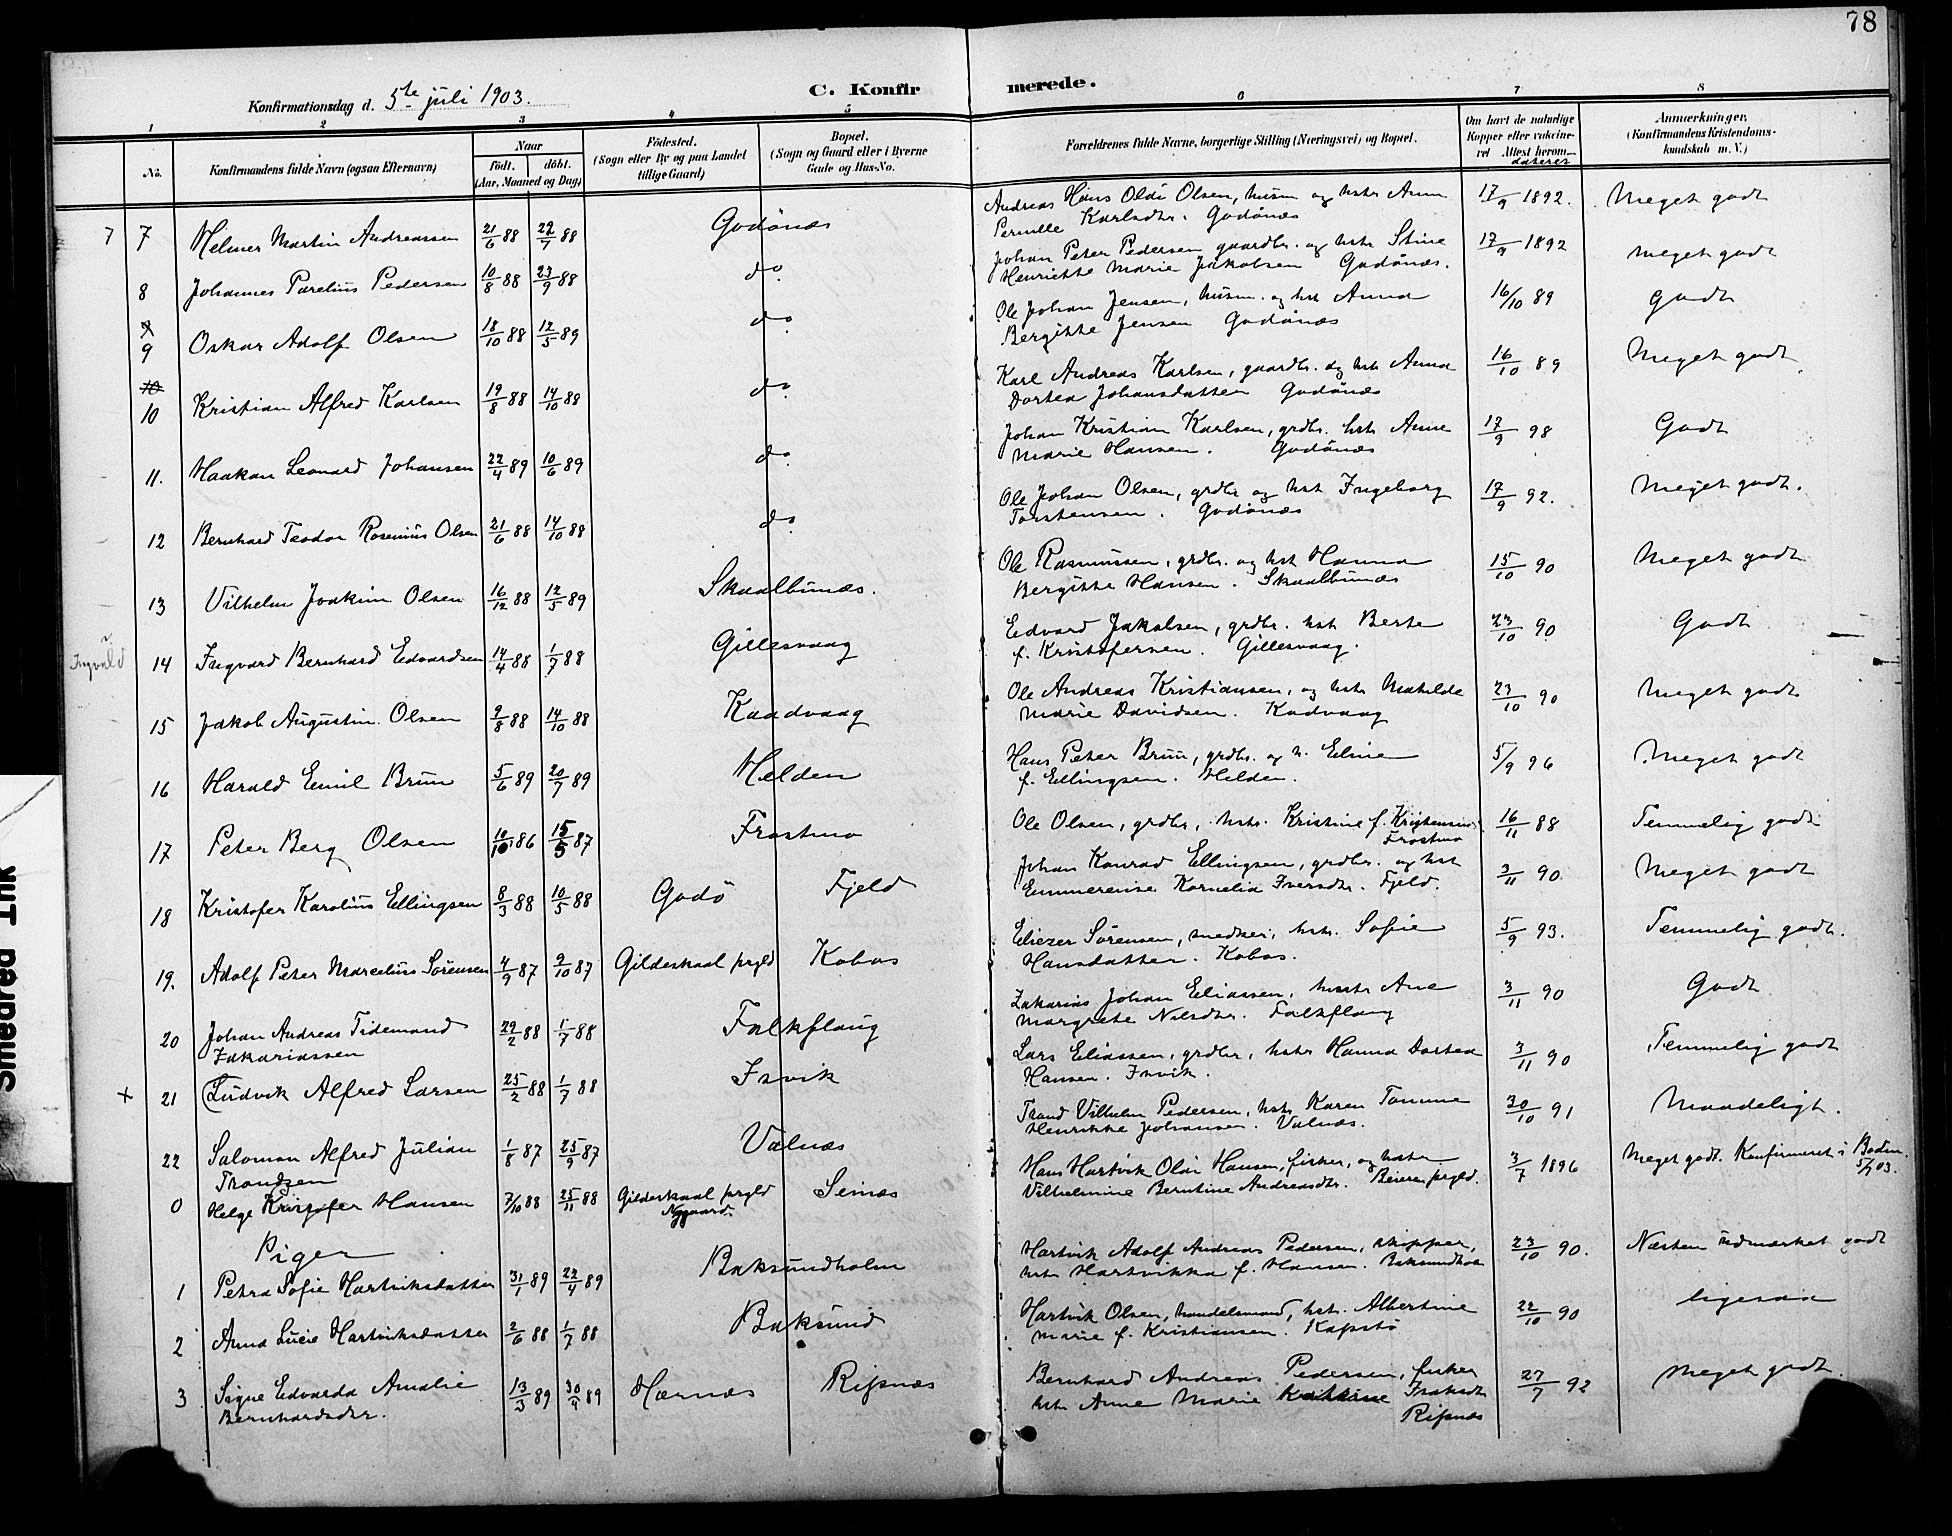 78
Konfirmationsdag d. 5te juli 1903.
C. Konfirmerede.
1 2 3 4 5 6 7 8
No.
Konfirmandens fulde Navn (ogsaa Efternavn)
Naar
födt. döbt.
(Aar, Maaned og Dag)
Födested.
(Sogn eller By og paa Landet
tillige Gaard)
Bopæl.
(Sogn og Gaard eller i Byerne
Gade og Hus-No.
Forældrenes fulde Navne, borgerlige Stilling (Næringsvei) og Bopæl.
Om havt de naturlige
Kopper eller vakcineret
Attest herom
dateret
Anmærkninger.
(Konfirmandens Kristendomskundskab
m. V.)
7 7 Helmer Martin Andreassen 21/6 88 22/7 88 Godönæs Andreas Hans Olai Olsen, husm og hstr Anne 17/9 1892. Meget godt
Pernille Karlsdtr. Godönæs
8 Johannes Parelius Pedersen 10/8 88 23/9 88 do Johan Peter Pedersen gaardbr. og hstr Stine 17/9 1892 Meget godt
Henriette Marie Jakobsen Godönæs.
9 Oskar Adolf Olsen 18/10 88 12/5 89 do Ole Johan Jensen, husm. og hst Anna 16/10 89 Godt
Bergitte Jensen Godönæs
10 Kristian Alfred Karlsen 19/8 88 14/10 88 do Karl Andreas Karlsen, gaardbr. og hst Anna 16/10 89 Meget godt
Dortea Johansdatter Godönæs
11. Haakon Leonard Johansen 22/4 89 10/6 89 do Johan Kristian Karlsen, grdbr. hstr Anne 17/9 98 Godt
Marie Hansen. Godönæs
12 Bernhard Teodor Rosenius Olsen 21/6 88 14/10 88 do Ole Johan Olsen, grdbr og hst Ingeborg 17/9 92. Meget godt.
Torstensen. Godönæs
13 Vilhelm Joakim Olsen 16/12 88 12/5 89 Skaalbunæs. Ole Rasmussen, grdbr. og hst Hanna 15/10 90 Meget godt
Bergitte Hansen. Skaalbunæs
Ingvald 14 Ingvard Bernhard Edvardsen 14/4 88 1/7 88 Gillesvaag Edvard Jakobsen, grdbr. hst Berte 23/10 90 Godt
f. Kristofersen. Gillesvaag.
15 Jakob Augustin Olsen 9/8 88 14/10 88 Kaadvaag Ole Andreas Kristiansen, og hstr Matilde 23/10 90 Meget godt
Marie Davidsen. Kodvaag
16 Harald Emil Brun 5/6 89 20/7 89 Helden Hans Peter Brun, grdbr. og h. Eline 5/9 96 Meget godt
f. Ellingsen. Helden.
17 Peter Berg Olsen 10/10 86 15/5 87 Frostmo Ole Olsen, grdbr, hstr. Kristine f. Kristensen 16/11 88 Temmelig godt
Frostmo
18 Kristofer Karolius Ellingsen 8/3 88 10/5 88 Godö Fjeld Johan Konrad Ellingsen, grdbr. og hst 3/11 90 Meget godt
Emmerense Kornelia Iversdtr. Fjeld.
19. Adolf Peter Marcelius Sörensen 4/9 87 9/10 87 Gildeskaal prgld Kobos Eliezer Sörensen, snedker, hstr. Sofie 5/9 93. Temmelig godt.
Hansdatter. Kobos.
20 Johan Andreas Tidemand 29/2 88 1/7 88 Falkflaug Zakarias Johan Eliassen, hustr Ane 3/11 90 Godt
Zakariassen Margrete Nilsdtr. Falkflaug
+ 21 (Ludvik Alfred Larsen 25/2 88 1/7 88 Isvik Lars Eliassen, grdbr, hstr Hanna Dortea 3/11 90 Temmelig godt
Hansen. Isvik.
22 Salomon Alfred Julian 1/8 87 25/9 87 Valnæs Trond Vilhelm Pedersen, hstr Karen Tomine 30/10 91 Maadeligt.
Trondsen Henrikke Johansen. Valnæs.
0 Helge Kristofer Hansen 7/10 88 25/11 88 Gildeskaal prgld Seinæs Hans Hartvik Olai Hansen, fisker, og hstr 3/7 1896 Meget godt. Konfirmeret i Bodin
Nygaard. Vilhelmine Berntine Andreasdtr. Beieren prgld. 5/7 03.
Piger
1 Petra Sofie Hartviksdatter 31/1 89 22/4 89 Baksundholm Hartvik Adolf Andreas Pedersen, skipper, 23/10 90. Næsten udmærket godt
hstr Hartvikka f. Hansen. Baksundhol
2 Anna Lucie Hartviksdatter 2/6 88 1/7 88 Baksund Hartvik Olsen, handelsmand, hst. Albertine 22/10 90 ligesaa
Marie f. Kristiansen. Kapstö
3 Signe Edvarda Amalie 13/3 89 30/4 89 Hernæs Ripnæs Bernhard Andreas Pedersen, fisker 27/7 92 Meget godt.
Bernhardsdtr. hstr Anne Marie Katrine Isaksdtr
Ripnæs
Smedred Ink